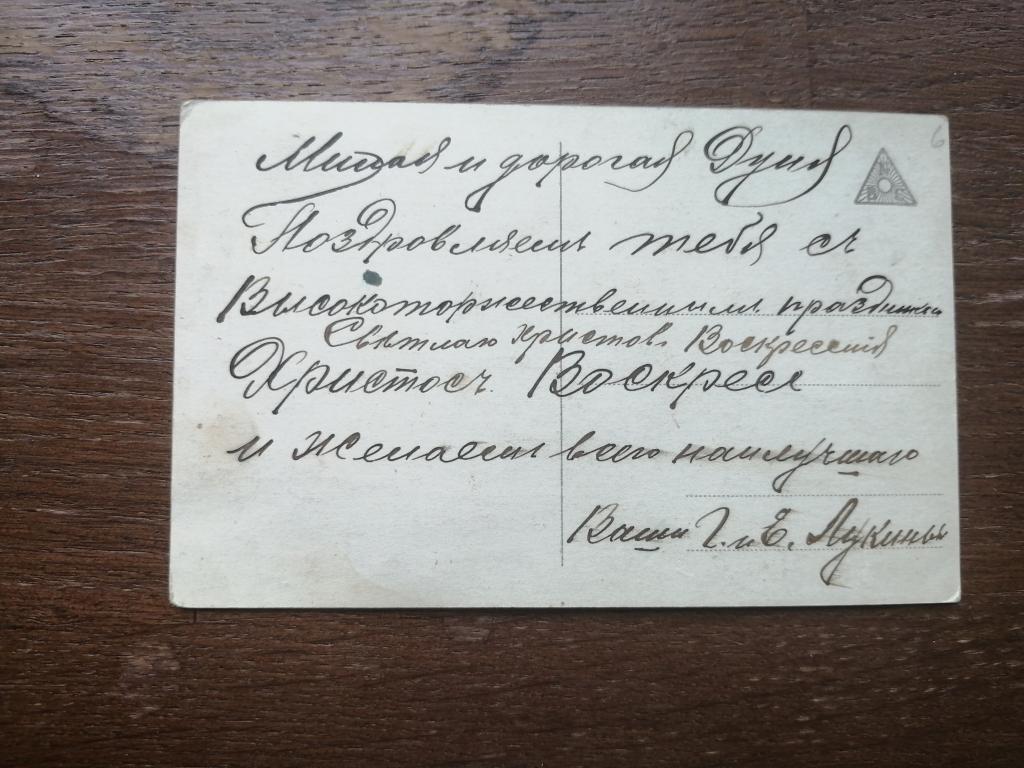 Милая и дорогая Дуня
Поздровляем тебя съ
Высокоторжественным праздником
Свѣтлаго Христов. Воскресения
Христосъ Воскресе
и желаем всего наилучшаго
Ваши Г. и Е. Лукины
6